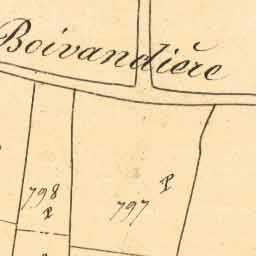 Boivandière
P
798
P
797